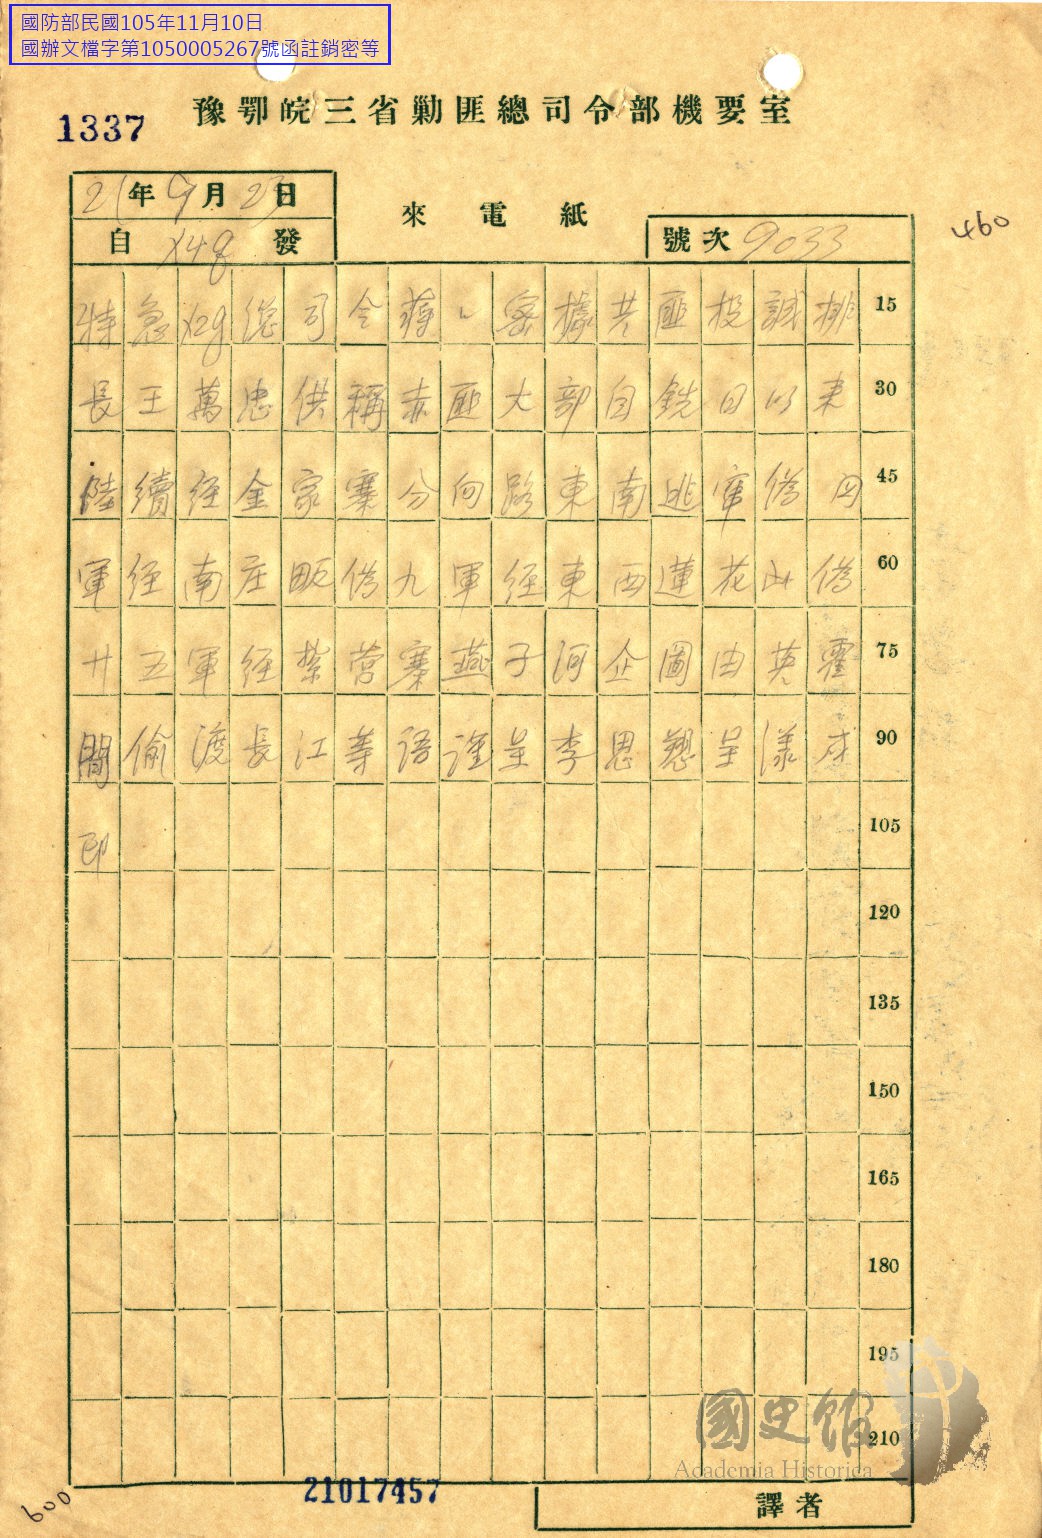 國防部民國105年11月10日
國辦文檔字第1050005267號函註銷密等
豫鄂皖三省剿匪總司令部機要室
1337
21年9月23日
來電紙
自 X48 發
號次 9033
460
特急X28總司令蔣 密據共匪投誠排 15
長王萬忠供稱赤匪大部自銑日以來 30
陸續經金家寨分向路東南逃竄偽四 45
軍經南庄畈偽九軍經東西蓮花山偽 60
廿五軍經紮营寨燕子河企圖由英霍 75
間偷渡長江等語謹呈李思愬呈漾戌 90
印 105
120
135
150
165
180
195
210
國史館
Academia Historica
21017457
600
譯者